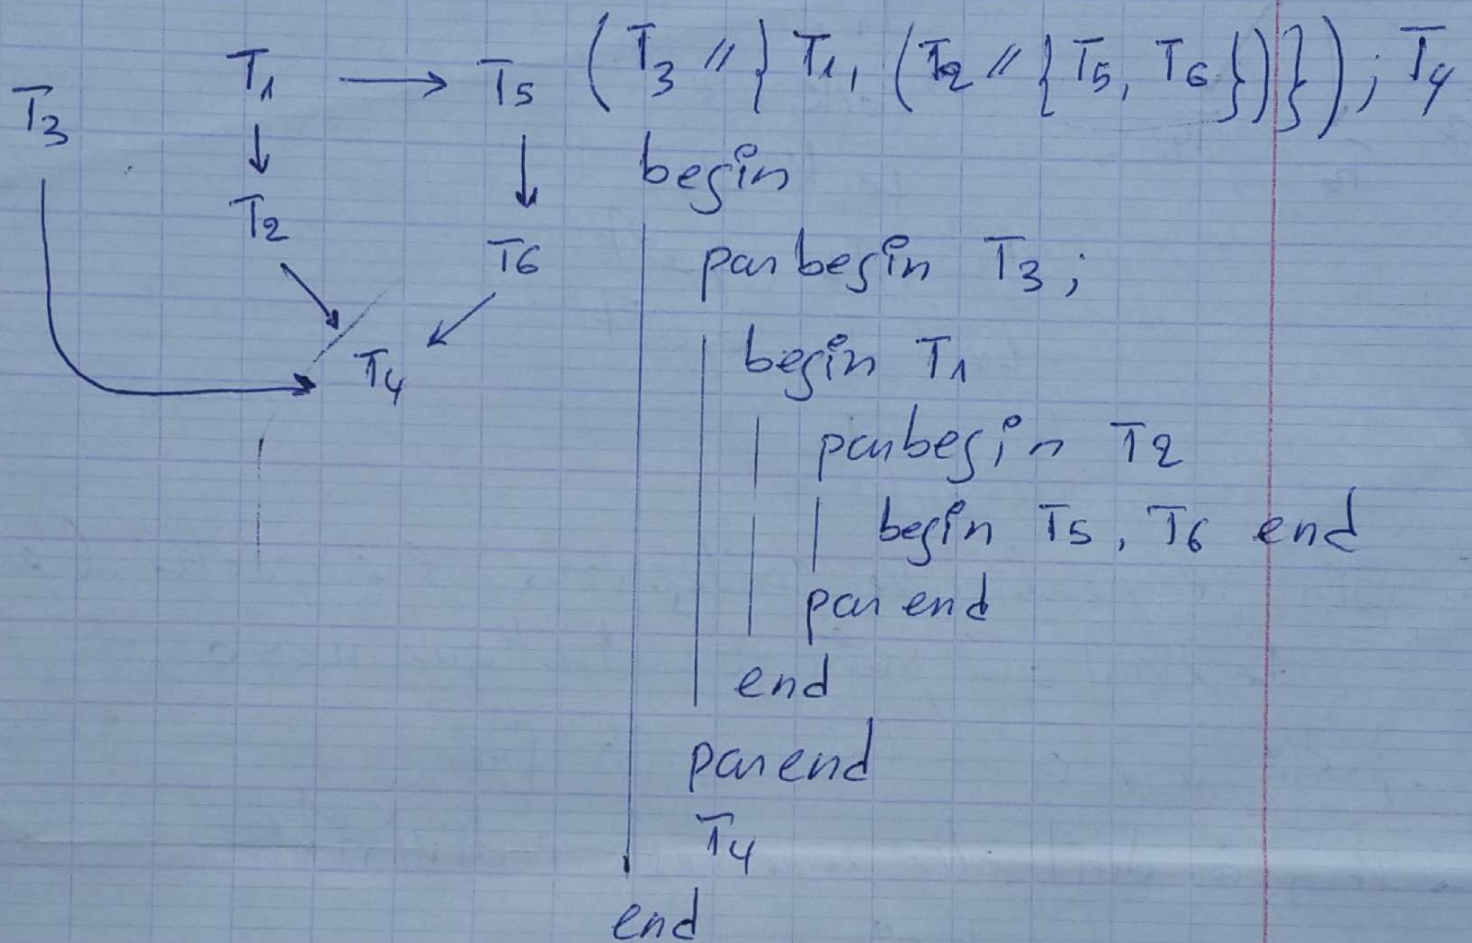 T1 → T5 (T3 // } T1, (T2 // {T5, T6})}); T4
T3
begin
T2
T6
parbegin T3;
T4
begin T1
parbegin T2
begin T5, T6 end
parend
end
parend
T4
end